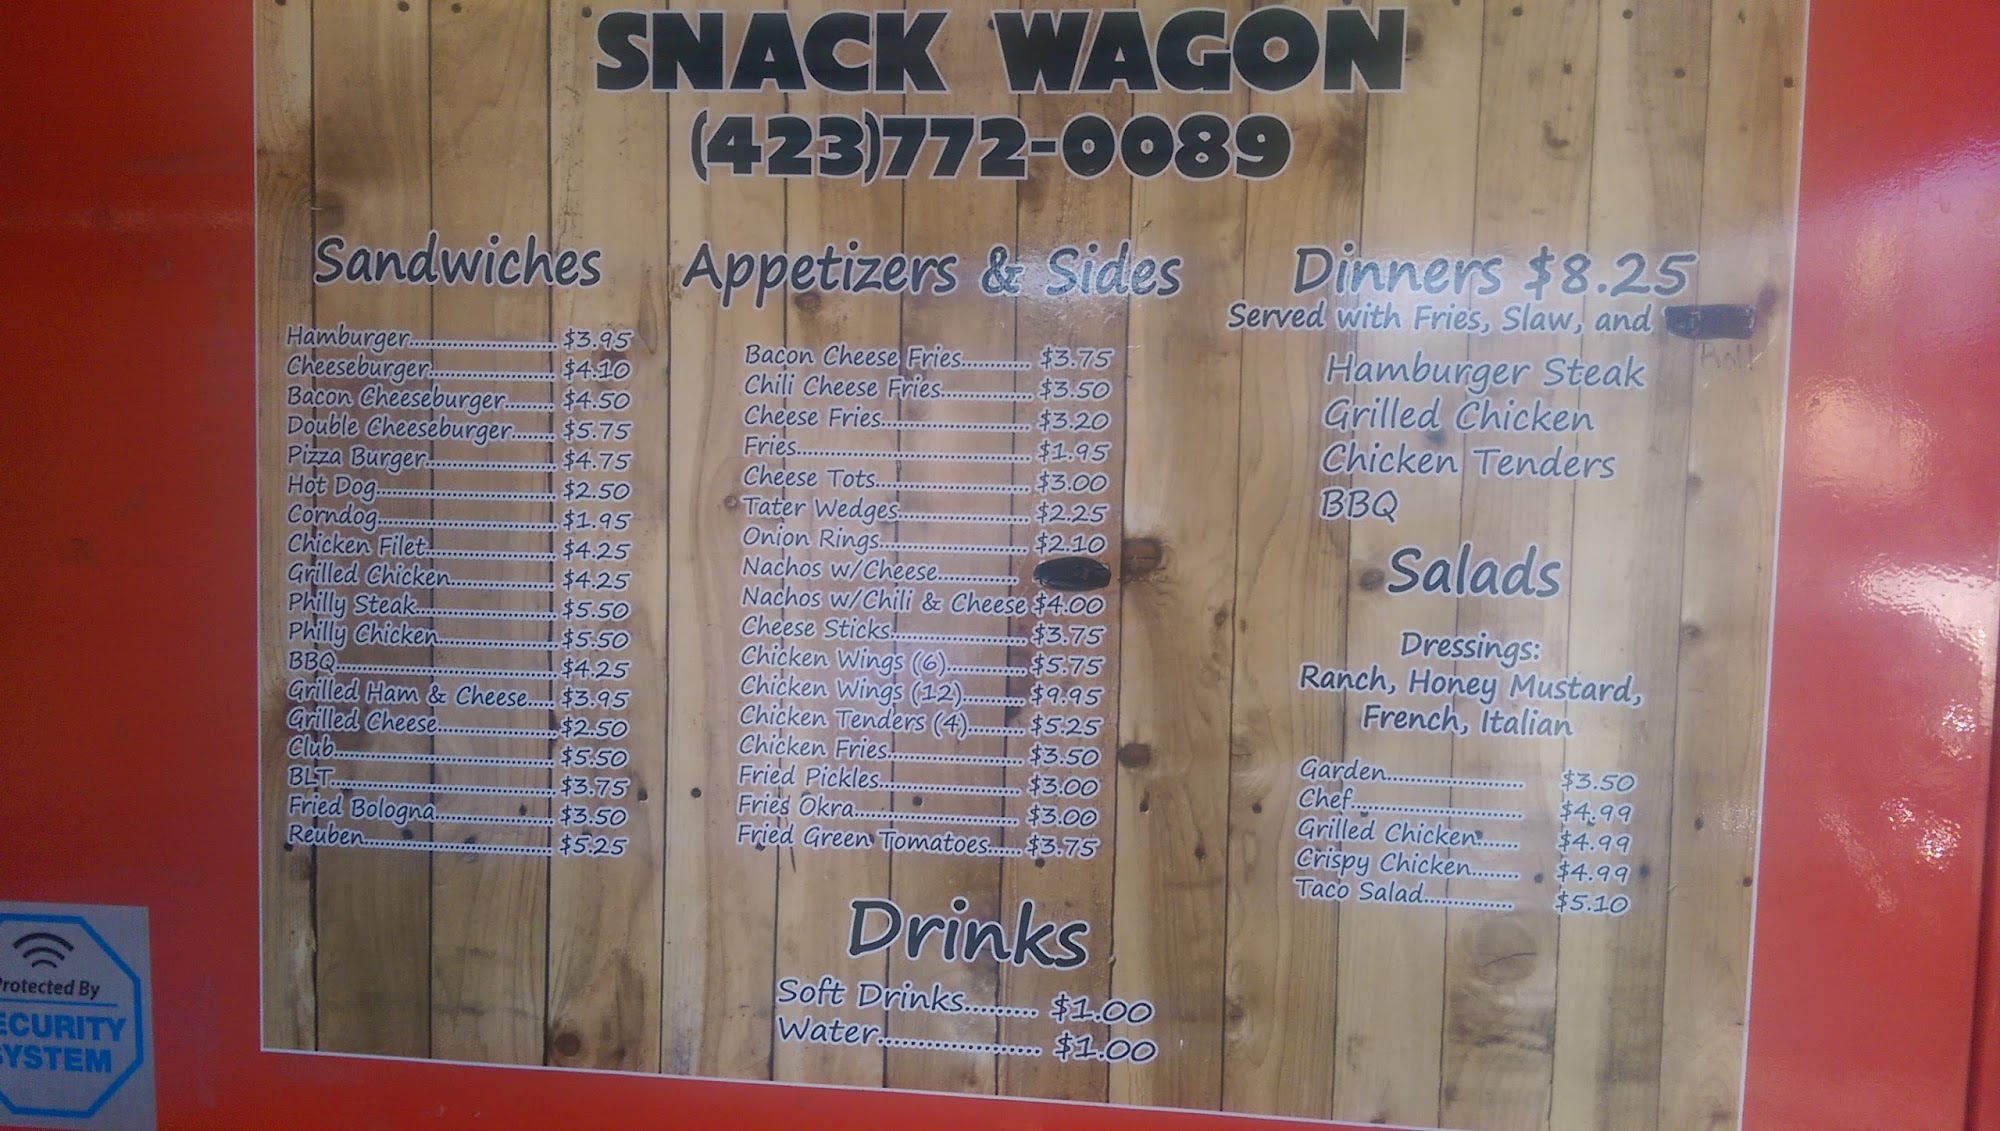 SNACK WAGON
(423)772-0089
Sandwiches
Hamburger..................... $3.95
Cheeseburger..................... $4.10
Bacon Cheeseburger......... $4.50
Double Cheeseburger....... $5.75
Pizza Burger..................... $4.75
Hot Dog.............................. $2.50
Corndog.............................. $1.95
Chicken Filet..................... $4.25
Grilled Chicken................. $4.25
Philly Steak....................... $5.50
Philly Chicken................... $5.50
BBQ..................................... $4.25
Grilled Ham & Cheese..... $3.95
Grilled Cheese....................$2.50
Club..................................... $5.50
BLT..................................... $3.75
Fried Bologna.................... $3.50
Reuben................................ $5.25
Appetizers & Sides
Bacon Cheese Fries............ $3.75
Chili Cheese Fries................ $3.50
Cheese Fries......................... $3.20
Fries....................................... $1.95
Cheese Tots.......................... $3.00
Tater Wedges...................... $2.25
Onion Rings......................... $2.10
Nachos w/Cheese..............
Nachos w/Chili & Cheese $4.00
Cheese Sticks....................... $3.75
Chicken Wings (6)............. $5.75
Chicken Wings (12)........... $9.95
Chicken Tenders (4).......... $5.25
Chicken Fries....................... $3.50
Fried Pickles........................ $3.00
Fries Okra............................ $3.00
Fried Green Tomatoes...... $3.75
Drinks
Soft Drinks......... $1.00
Water.................... $1.00
Dinners $8.25
Served with Fries, Slaw, and
Hamburger Steak
Grilled Chicken
Chicken Tenders
BBQ
Salads
Dressings:
Ranch, Honey Mustard,
French, Italian
Garden....................... $3.50
Chef............................. $4.99
Grilled Chicken....... $4.99
Crispy Chicken........ $4.99
Taco Salad............... $5.10
Protected By
SECURITY
SYSTEM